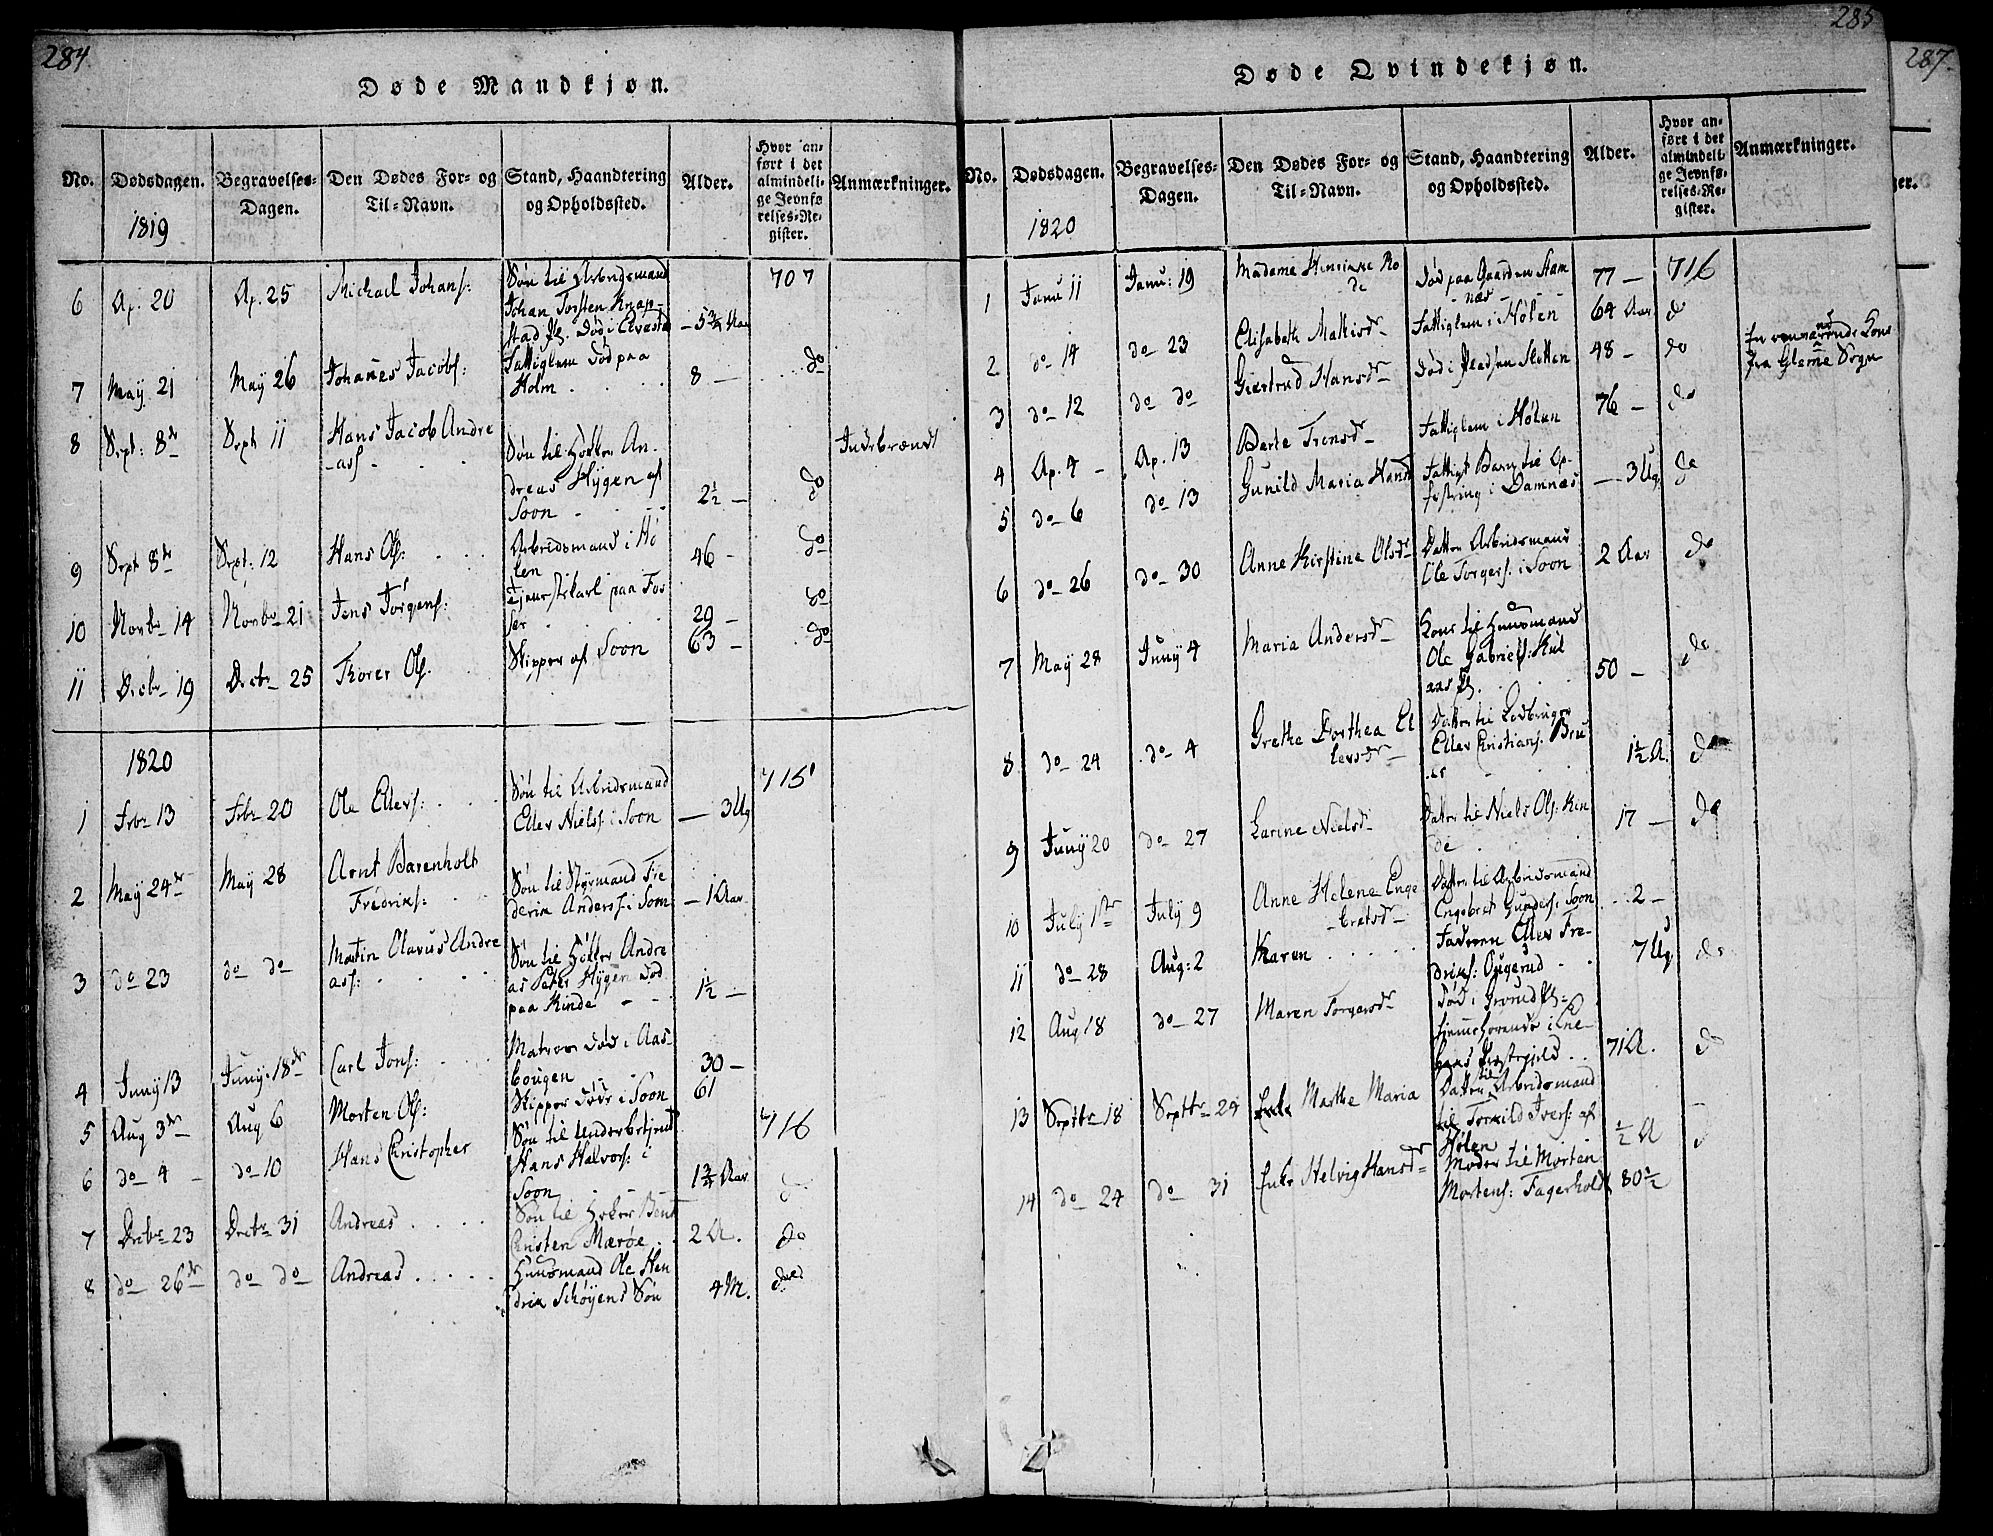 284
Døde Mandkjøn.
No.
Dødsdagen.
Begravelses-
Dagen.
Den Dødes For- og
Til-Navn.
Stand, Haandtering
og Opholdssted.
Alder.
Hvor an-
ført i det
almindeli-
ge Jevnfø
relses-Re-
gister.
Anmærkninger.
1819
6 Ap. 20 Ap. 25 Michael Johans: Søn til Arbeidsmand 707
Johan Torsten Knap-
stad Pl. død i
7 May 21 May 26 Johanes Jacobs: Fattiglem død paa
Holm 8 — do
8 Sept: 8de Sept 11 Hans Jacob Andre
-as Søn til Høker An-
dreas Hygen af
Soon 2½ — do Indebrændt
9 Sept 8de Sept: 12 Hans Ols: Arbeidsmand i Hø
len 46 - do
10 Novbr 14 Novbr 21 Jens Jørgens: Tjenestekarl paa Fos
ser 29 - do
11 Decbr 19 Decbr 25 Thorer Ols. Skipper af Soon 63 - do
1820
1 Febr 13 Febr 20 Ole Ellevs: Søn til Arbeidsmand
Ellev Niels: i Soon — 3 Ug 715
2 May 24de May 28 Arnt Barenholt
Fredriks: Søn til Styrmand Fre
derik Anders: i Soon — 1 Aar
3 do 23 do do Martin Olavus Andre
ass: Søn til Høker Andre
as Peter Hygen død
paa Kinde 1½ —
4 Juny 13 Juny 18de Carl Jons: Matros død i Aas-
bougen 30 —
5 Aug 3de Aug 6 Morten Ols: Skipper døde i Soon 61
6 do 4 do 10 Hans Christopher Søn til Underbetjent 716
Hans Halvors: i
Soon 1¾ Aar
7 Decbr 23 Decbr 31 Andreas Søn til Høker Bent
Christen Mærøe 2 A. do
8 do 26de do do Andreas Huusmand Ole Hen
drik Schøyens Søn 4 M. do
285
Døde Qvindekjøn.
No.
Dødsdagen.
Begravelses-
Dagen.
Den Dødes For- og
Til-Navn.
Stand, Haandtering
og Opholdssted.
Alder.
Hvor an-
ført i det
almindeli-
ge Jevnfø-
relses-Re-
gister.
Anmærkninger.
1820
1 Janu 11 Janu: 19 Madame Henrikke Ro
de død paa Gaarden
77 — 716
2 do 14 do 23 Elisabeth Mathisdr Fattiglem i Hølen 64 Aar do
3 do 12 do do Giertrud Hansdr død i Pladsen 48 — do Kone
fra Glemme Sogn
4 Ap. 4 Ap. 13 Berte Fattiglem i Hølen 76 — do
5 do 6 do 13 Gunild Maria Hansd Fattigt Barn til Op-
fostring i Damnæs — 3 Ug. do
6 do 26 do 30 Anne Kirstine Olsdr Datter Arbeidsmand
Ole Torgers: i Soon 2 Aar do
7 May 28 Juny 4 Maria Andersdr Kone til Huusmand
Ole Gabriels:
aas Pl. 50 — do
8 do 24 do 4 Grethe Dorthea El
levsdr Datter til
Ellev Christians:
1½ A. do
9 Juny 20 do 27 Larine Nielsd Datter til Niels Ols: Kin
de 17 — do
10 July 1ste July 9 Anne Helene Enge
bretsdr Datter til Arbeidsmand
Engebret Gunders: Soon 2 —
11 do 28 Aug: 2 Karen Faderen Ellev Fre-
driks: 7 Ug. do
12 Aug 18 do 27 Maren Torgersdr død i
hjemmehørende i Ene-
bak Præstegield 71 A. do
13 Septbr 18 Septbr 24 Marthe Maria Datter til Arbeidsmand
til Torkild Ivers: af
Hølen ½ A
14 do 24 do 31 Enke Helvig Hansdr Moder til Morten
Mortens: Fagerholdt 80½
287.
ger.